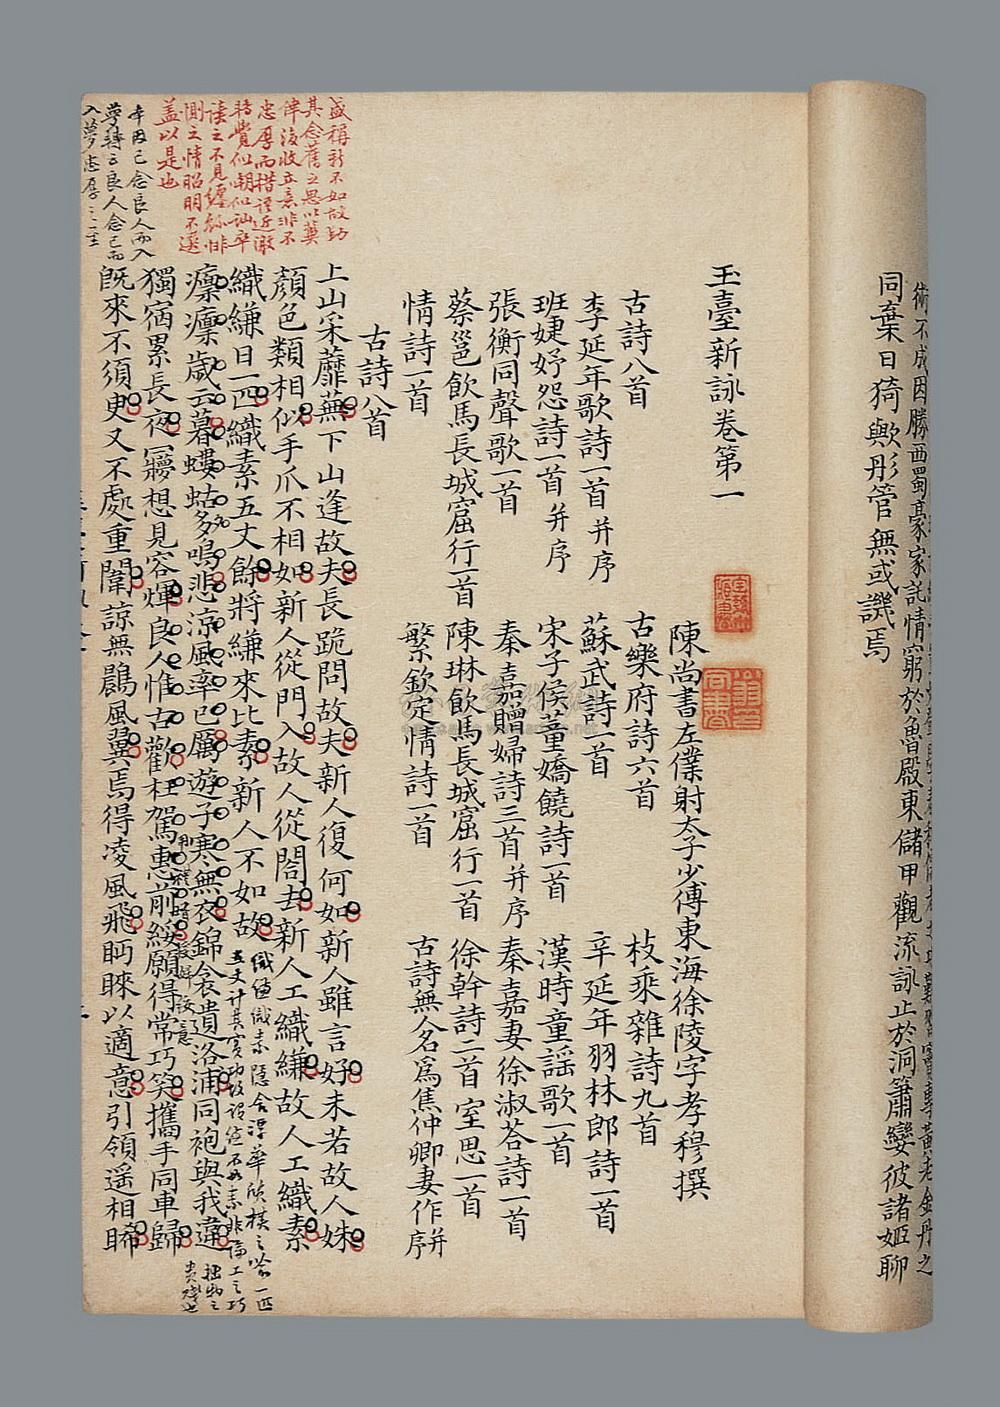 術不成因勝西蜀豪家託情窮於魯殿東儲甲觀流詠止於洞簫孌彼諸姬聊
同棄日猗歟彤管無或譏焉
玉臺新詠卷第一
陳尚書左僕射太子少傅東海徐陵字孝穆撰
古詩八首
古樂府詩六首
枚乘雜詩九首
李延年歌詩一首并序
蘇武詩一首
辛延年羽林郎詩一首
班婕妤怨詩一首并序
宋子侯董嬌饒詩一首
漢時童謠歌一首
張衡同聲歌一首
秦嘉贈婦詩三首并序
秦嘉妻徐淑答詩一首
蔡邕飲馬長城窟行一首
陳琳飲馬長城窟行一首
徐幹詩二首室思一首
情詩一首
繁欽定情詩一首
古詩無名爲焦仲卿妻作并序
古詩八首
上山采蘼蕪下山逢故夫長跪問故夫新人復何如新人雖言好未若故人姝
顏色類相似手爪不相如新人從門入故人從閤去新人工織縑故人工織素
織縑日一匹織素五丈餘將縑來比素新人不如故
凜凜歲云暮螻蛄多鳴悲涼風率已厲遊子寒無衣錦衾遺洛浦同袍與我違
獨宿累長夜夢想見容煇良人惟古歡枉駕惠前綏願得常巧笑攜手同車歸
既來不須臾又不處重闈諒無鷐風翼焉得凌風飛眄睞以適意引領遥相睎
盛稱新不如故
其念舊之思以冀
忠厚而措
讀之不見
惻之情昭明不選
蓋以是也
念良人而入
夢轉云良人念己而
入夢忠厚之